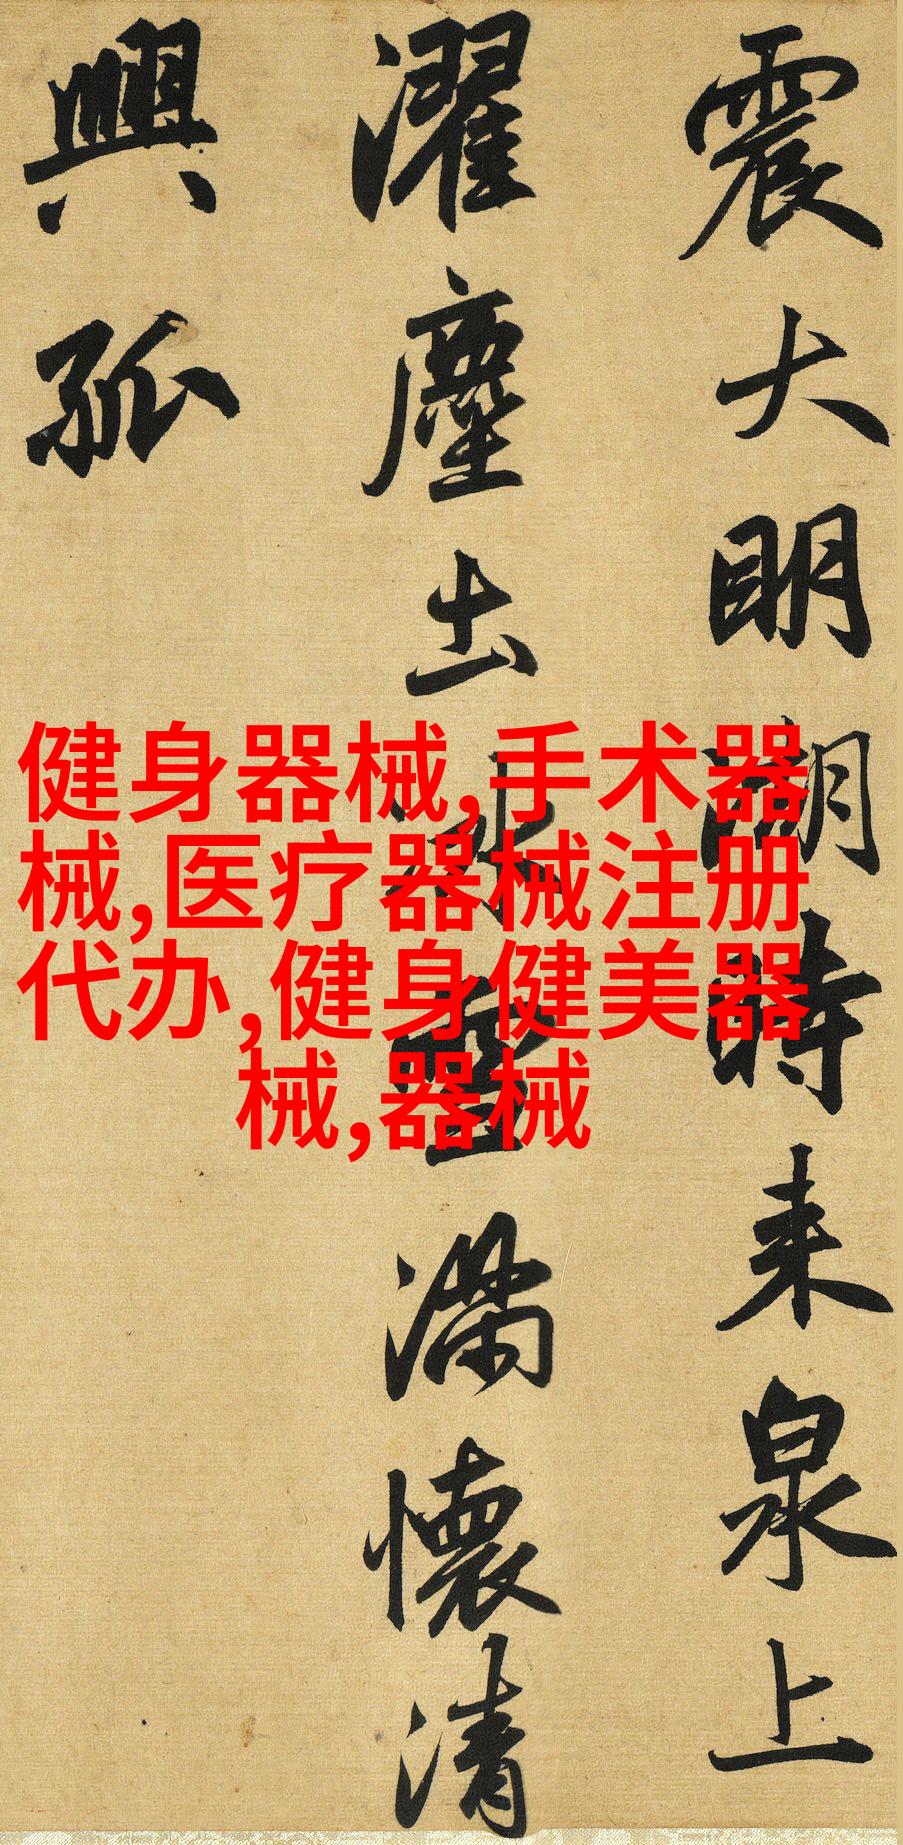 震大明湖時来泉上
濯塵出冰雪滿懷清
興孤
健身器械,手术器
械,医疗器械注册
代办,健身健美器
械,器械